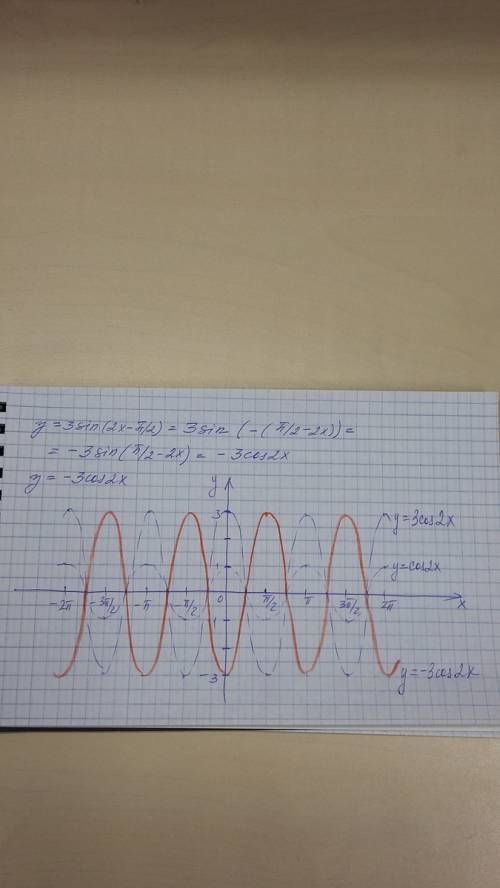 y = 3sin(2x-π/2) = 3sin (-(π/2-2x)) =
= -3sin(π/2-2x) = -3cos2x
y = -3cos2x
y
3
y=3cos2x
1
y=cos2x
-2π -3π/2 -π -π/2 0 π/2 π 3π/2 2π x
1
-3
y=-3cos2x